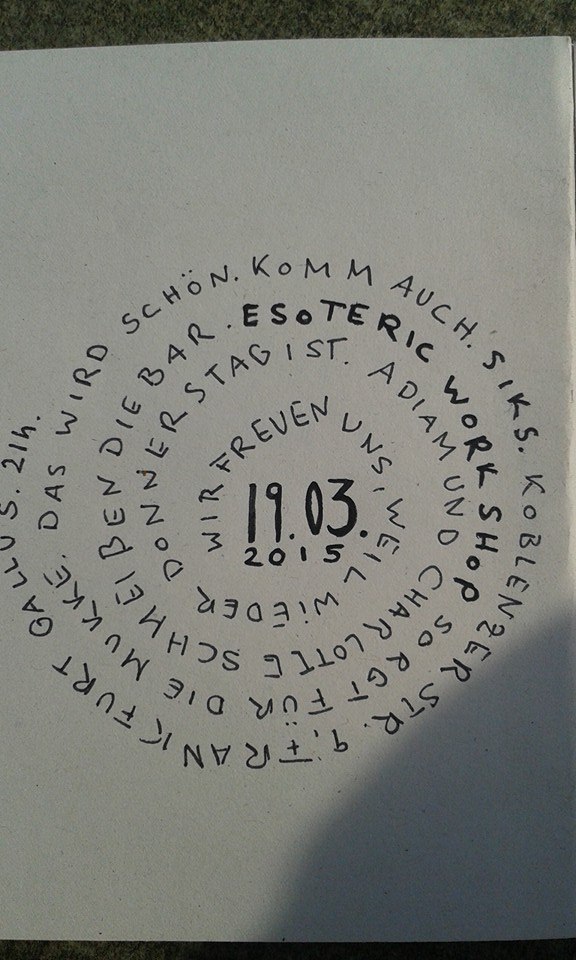 19.03.
2015
WIR FREUEN UNS, WEIL WIEDER DONNERSTAG IST. ADIAM UND CHARLOTTE SCHMEIßEN DIE BAR. ESOTERIC WORK SHOP SORGT FÜR DIE MUKKE. DAS WIRD SCHÖN. KOMM AUCH. SIKS. KOBLENZER STR. 9, FRANKFURT GALLUS. 21h.